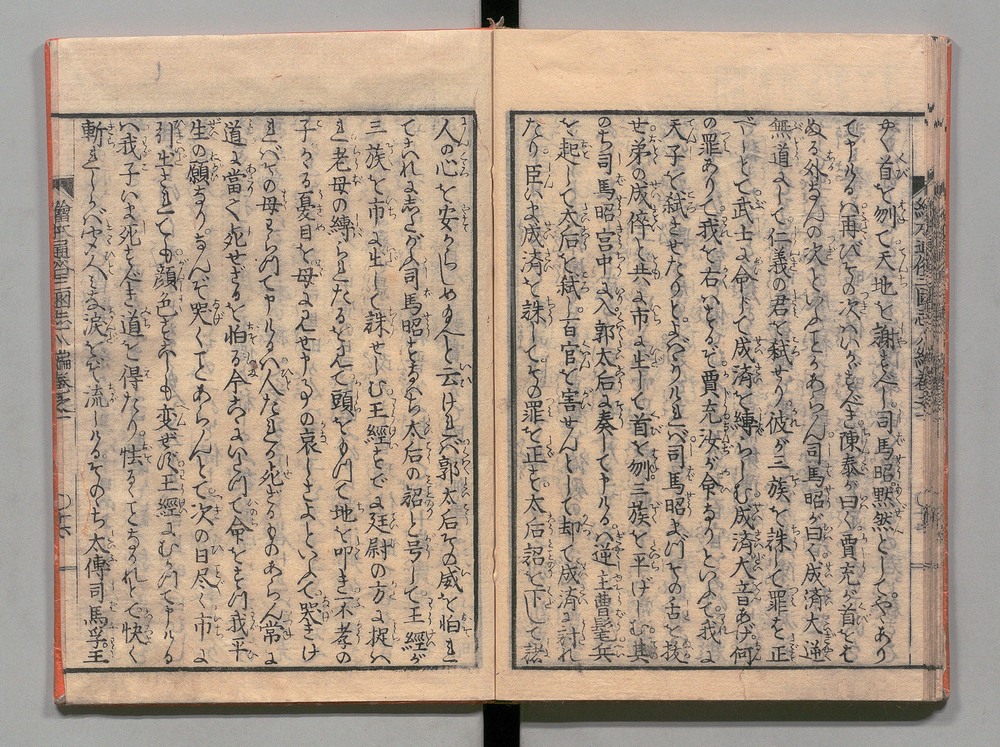 やく首を刎て天地を謝すべし司馬昭黙然としてややあり
て申けるは再びその次はいかがすべき陳泰が曰く賈充が首をも
ぬる外なんの次といふことかあらん司馬昭が曰く成済大逆
無道にして仁義の君を弑せり彼が三族を誅して罪を正す
べしとて武士に命じて成済を縛らしむ成済大音あげ何
の罪ありて我を右いとるぞ賈充汝が命なりといふて我に
天子を弑させたりとよばはりければ司馬昭まづその舌を抜
せ弟の成倅と共に市に出して首を刎三族を平げしむ其
のち司馬昭宮中に入郭太后に奏して申けるは逆主曹髦兵
を起して太后を弑し百官を害せんとして却て成済に討れ
たり臣いま成済を誅してその罪を正す太后詔を下して諸
人の心を安からしめ玉へと云ければ郭太后その威を怕れ
てきれにしたがふ司馬昭すなはち太后の詔と号して王經が
三族を市に出して誅せしむ王經すでに廷尉の方に捉は
れ老母の縛られたるを見て頭をもつて地を叩き不孝の
子かかる憂目を母に見せ申事の哀しさよといふて哭きけ
ればその母わらつて申けるは人たれか死せざるものあらん常に
道に當て死せざるを怕る今ここにいたつて命をすつ我平
生の願なりなんぞ哭くことあらんとて次の日尽く市に
引出されても顔色すこしも変ぜず王經にむかつて申ける
は我子いま死すべき道を得たり怯るることなかれとて快く
斬れしかばみな人みな涙をぞ流しけるそののち太傅司馬孚王
繪本通俗三國志八編卷之一